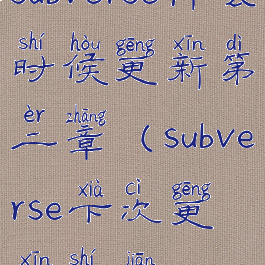 shí hòu gēng xīn dì
时候更新第
èr zhāng
二章 (subve
xià cì gēng
rse下次更
xīn shí jiān